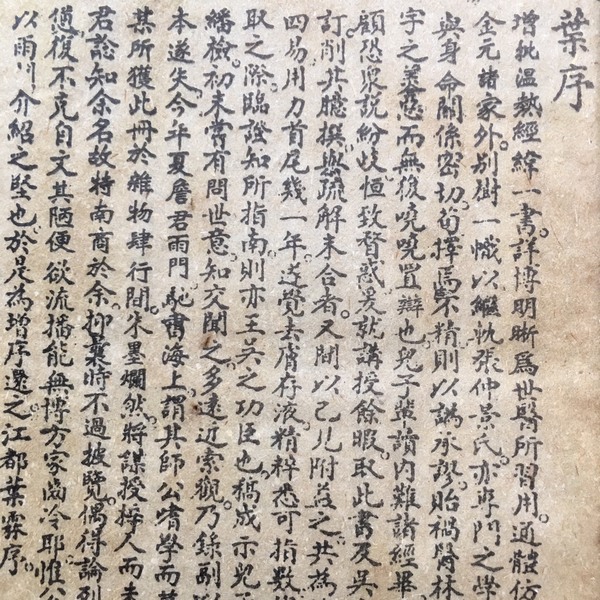 葉序
增批溫熱經緯一書詳博明晰爲世醫所習用通體仿
金元諸家外別樹一幟以繼軌張仲景氏亦專門之學
與身命關係密切苟擇焉不精則以譌承謬貽禍醫林
字之美惡而無復嘵嘵置辯也兒子輩讀內難諸經畢
顧恐衆說紛歧恒致瞀惑爰就講授餘暇取此書及吳
訂削其臆撰與疏解未合者又間以己見附益之共爲
四易用力首尾幾一年迄覺去膚存液精粹悉可指數
取之際臨證知所指南則亦王吳之功臣也稿成示兒
繙檢初未嘗有問世意知交聞之多遠近索觀乃錄副
本遂失今年夏詹君雨門馳書海上謂其師公嗜學而
某所獲此冊於雜物肆行間朱墨爛然將謀授梓人而未
君諗知余名故特南商於余抑曩時不過披覽偶得論列
邇復不克自文其陋便欲流播能無博方家齒冷耶惟公
以雨門介紹之堅也於是爲增序還之江都葉霖序